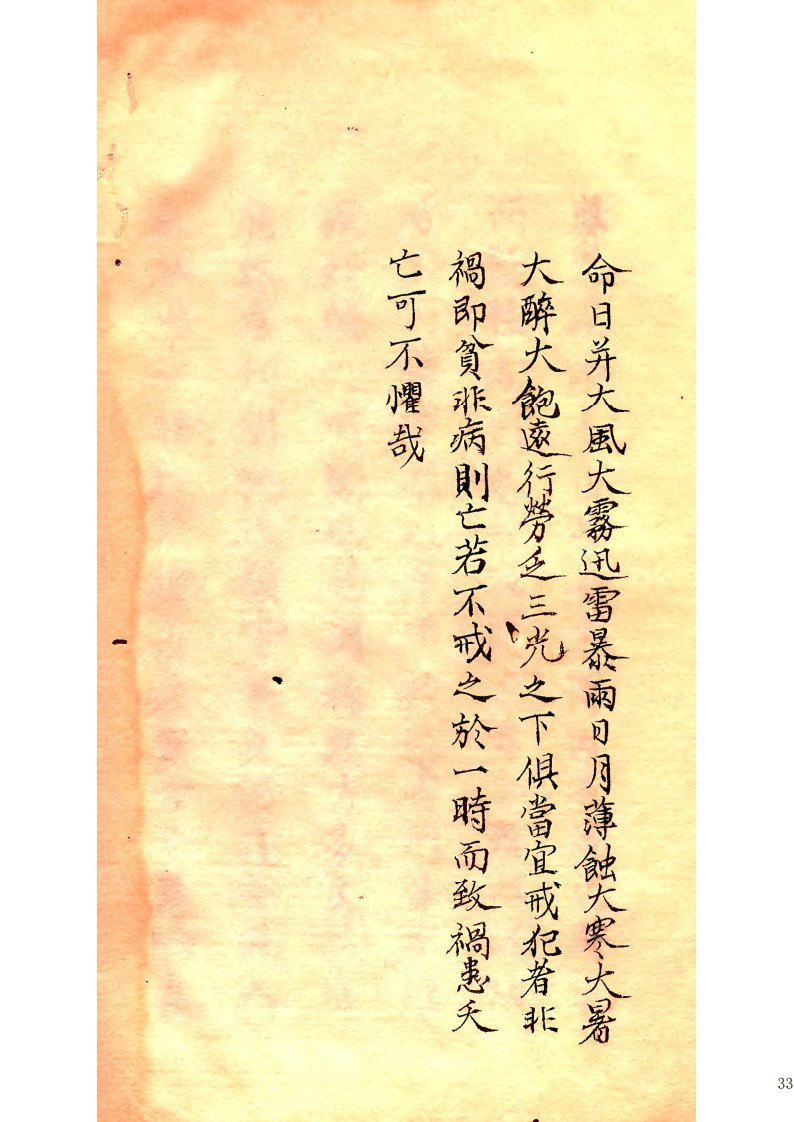 命日并大風大霧迅雷暴雨日月薄蝕大寒大暑
大醉大飽遠行勞乏三光之下俱當宜戒犯者非
禍即貧非病則亡若不戒之於一時而致禍患夭
亡可不懼哉
33